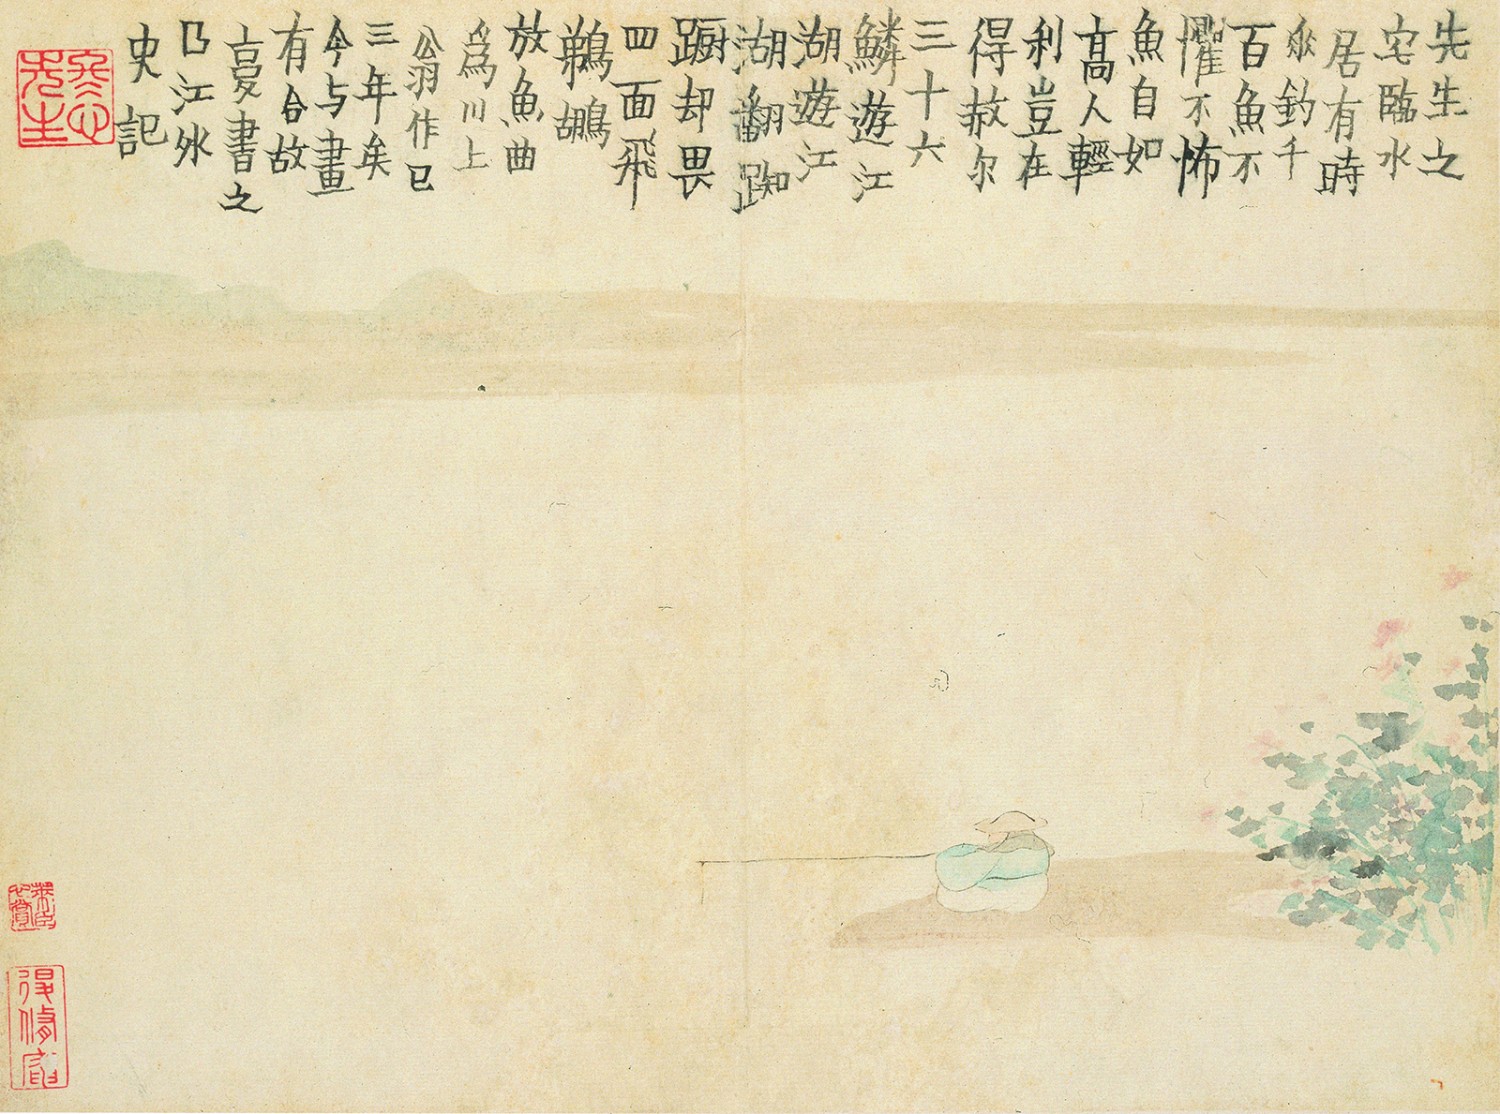 先生之
宅臨水
居有時
垂釣千
百魚不
懼不怖
魚自如
高人輕
利豈在
得赦尔
三十六
鱗遊江
湖遊江
湖翻踟
蹰却畏
四面飛
鵜鶘
放魚曲
為川上
公翁作已
三年矣
今与畫
有合故
夏書之
乃江外
史記
冬心先生